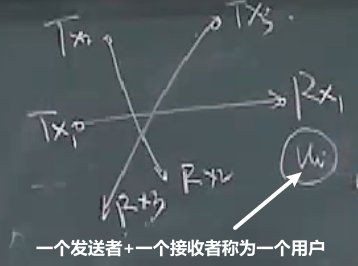 Tx2
Tx3
Tx1
Rx1
Rx2
Rx3
Ui
一个发送者+一个接收者称为一个用户